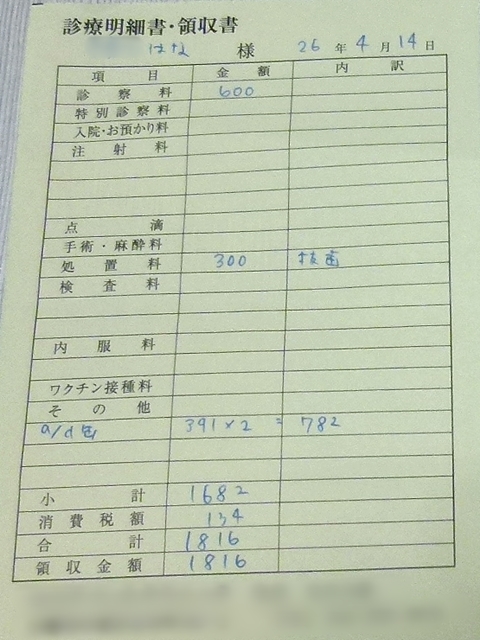 診療明細書・領収書
はな 様 26年4月14日
項目 金額 内訳
診察料 600
特別診察料
入院・お預かり料
注射料
点滴
手術・麻酔料
処置料 300 抜歯
検査料
内服料
ワクチン接種料
その他
a/d缶 391×2 = 782
小計 1682
消費税額 134
合計 1816
領収金額 1816